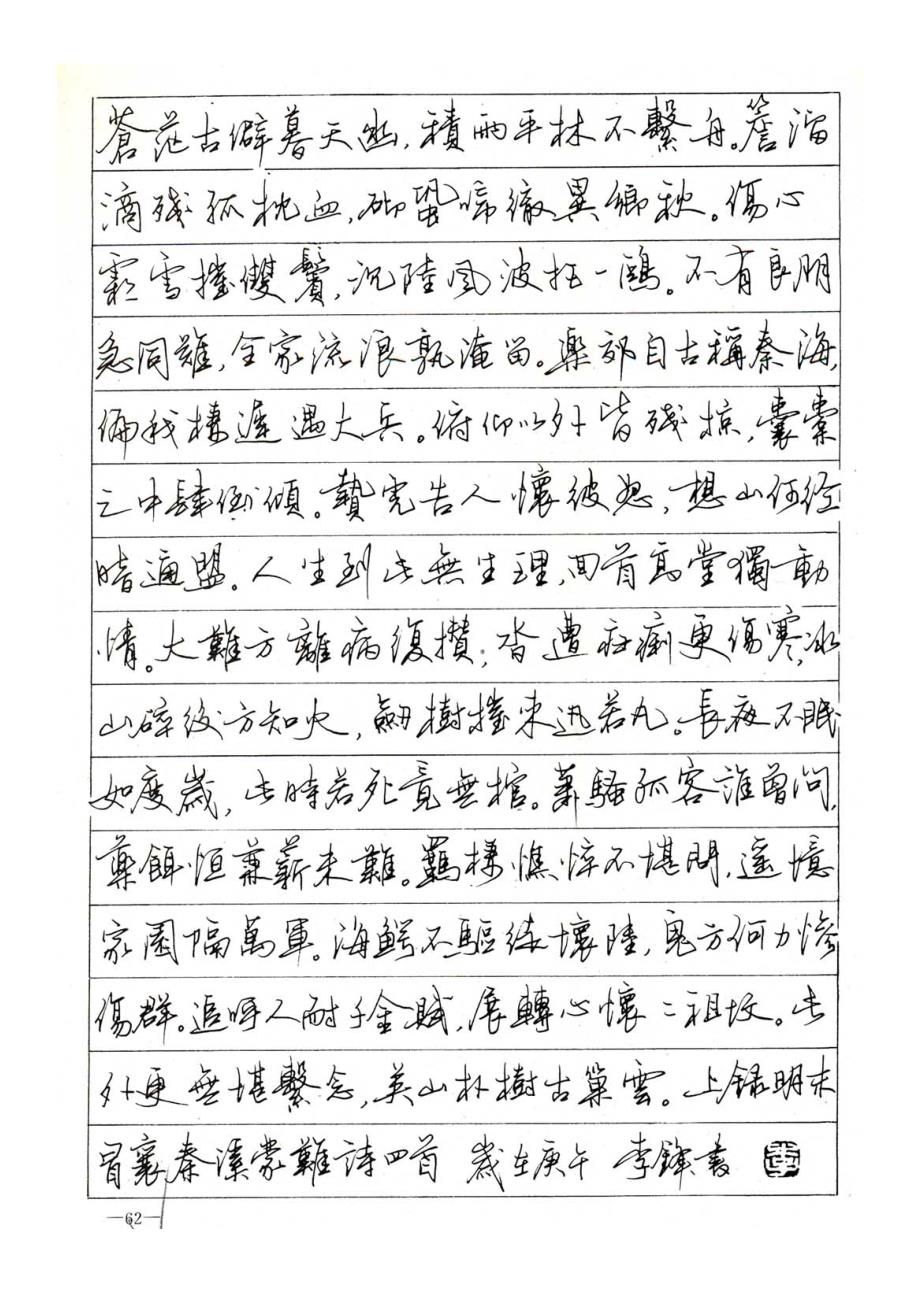 蒼茫古僻暮天幽,積雨平林不繫舟。簷溜
滴殘孤枕血,砌蛩啼徹異鄉秋。傷心
霜雪摧雙鬢,沉陸風波托一鷗。不有良朋
急同難,全家流浪孰淹留。樂郊自古稱秦海,
偏我棲遲遇大兵。俯仰以外皆殘掠,囊橐
之中肆倒傾。 告人懷彼怒,想山何經
暗通盟。人生到此無生理,回首高堂獨動
情。大難方離病復攢,沓遭瘧痢更傷寒,冰
山碎後方知火,劒樹摧來迅若丸。長夜不眠
如度歲,此時若死竟無棺。蕭騷孤客誰曾問,
藥餌恒兼薪米難。羈棲憔悴不堪聞,遙憶
家園隔萬軍。海鰐不驅徒壞陸,鬼方何力慘
傷群。追呼人耐千金賦,展轉心懷二祖墳。此
外更無堪繫念,英山朴樹古巢雲。上録明末
冒襄秦溪蒙難詩四首 歲在庚午 李鋒書
—62—